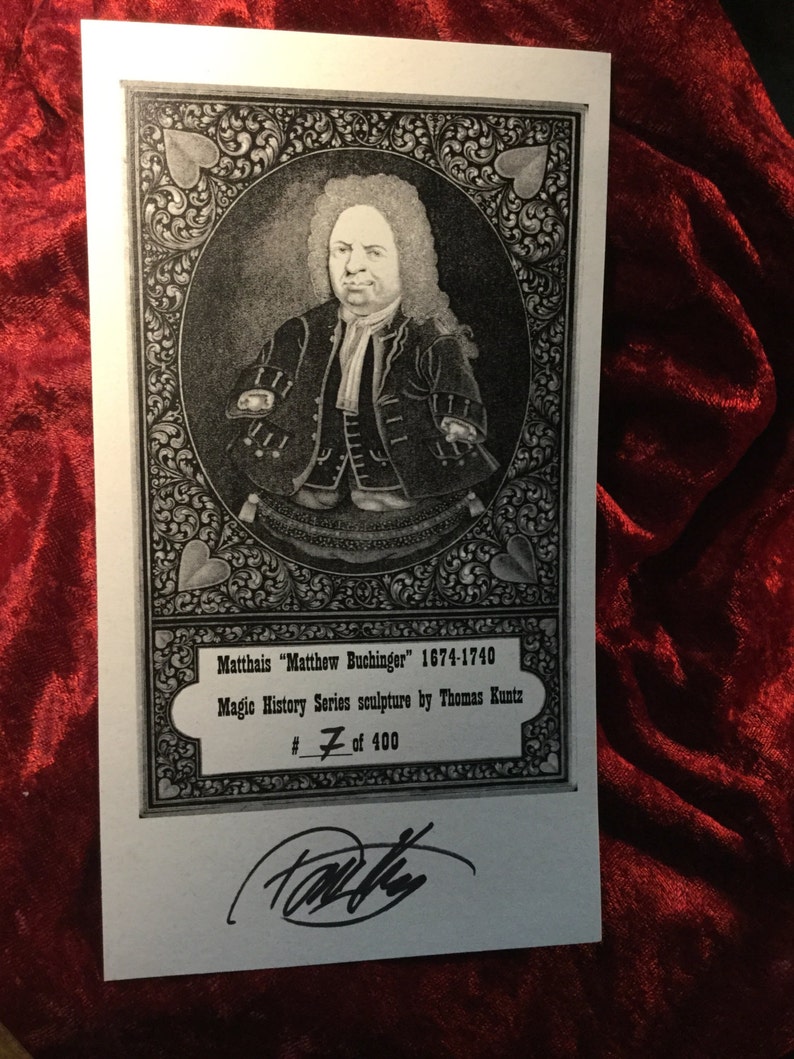 Matthais “Matthew Buchinger” 1674-1740
Magic History Series sculpture by Thomas Kuntz
# 7 of 400